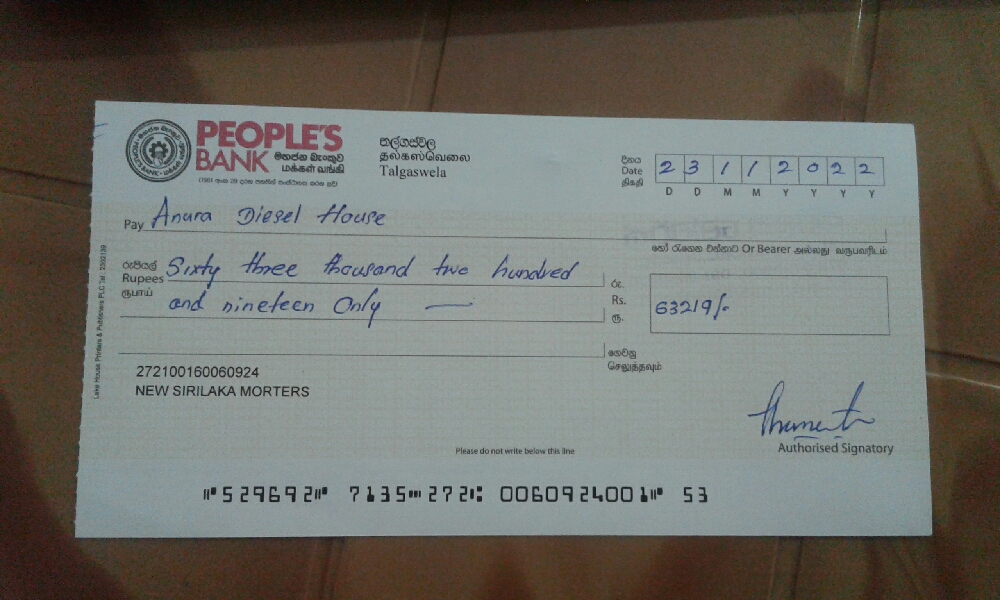 PEOPLE'S
BANK මහජන බැංකුව
மக்கள் வங்கி
තල්ගස්වල
தல்கஸ்வெலை
Talgaswela
දිනය
Date
திகதி
2 3 1 1 2 0 2 2
D D M M Y Y Y Y
Pay Anura Diesel House
හෝ රැගෙන එන්නාට Or Bearer அல்லது வருபவரிடம்
රුපියල්
Rupees
ரூபாய்
Sixty three thousand two hundred
and nineteen Only
රු.
Rs.
ரூ.
63219/-
ගෙවනු
செலுத்தவும்
272100160060924
NEW SIRILAKA MORTERS
Authorised Signatory
Please do not write below this line
⑈529692⑈ 7135⑉272⑆ 0060924001⑈ 53
Lake House Printers & Publishers PLC